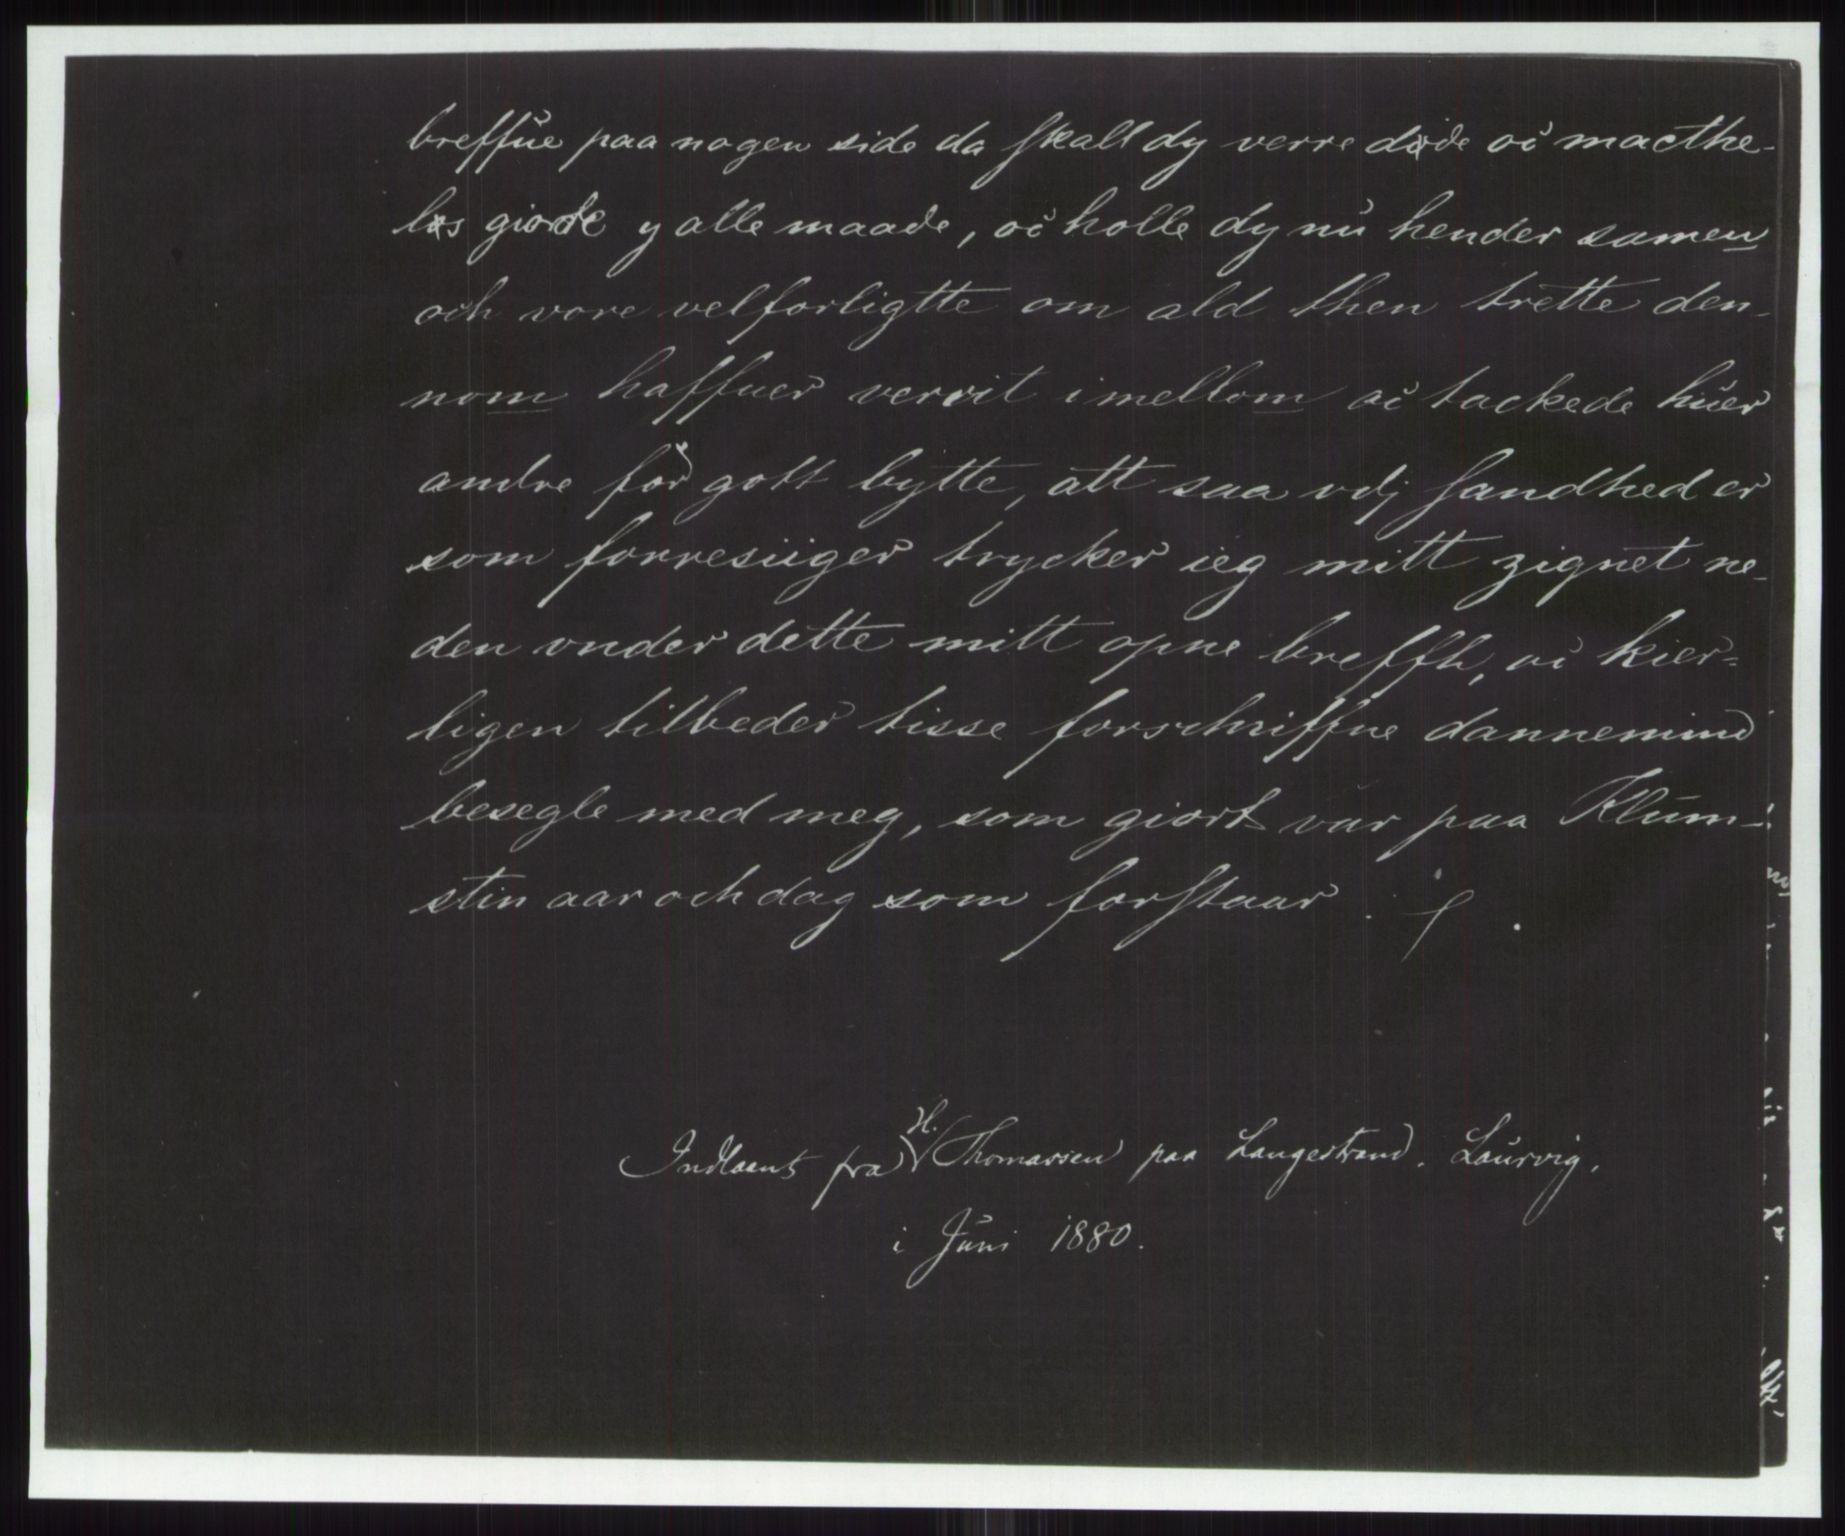 breffue paa nogen side da skall dy verre døde oc macthe-
løs giorde y alle maade, oc holle dy nu hender samen
och vore velforligtte om ald then trette den-
nom haffuer verrit imellom oc tackede huer
andre for gott bytte, att saa vdj sandhed er
som forresiiger trycker ieg mitt zignet ne-
den vnder dette mitt opne breffh, oc kier-
ligen tilbeder tisse forschriffne dannemend
besegle med meg, som giort var paa Klum-
stin aar och dag som forstaar.
Indlaant fra H. Thomassen paa Langestrand. Laurvig.
i Juni 1880.